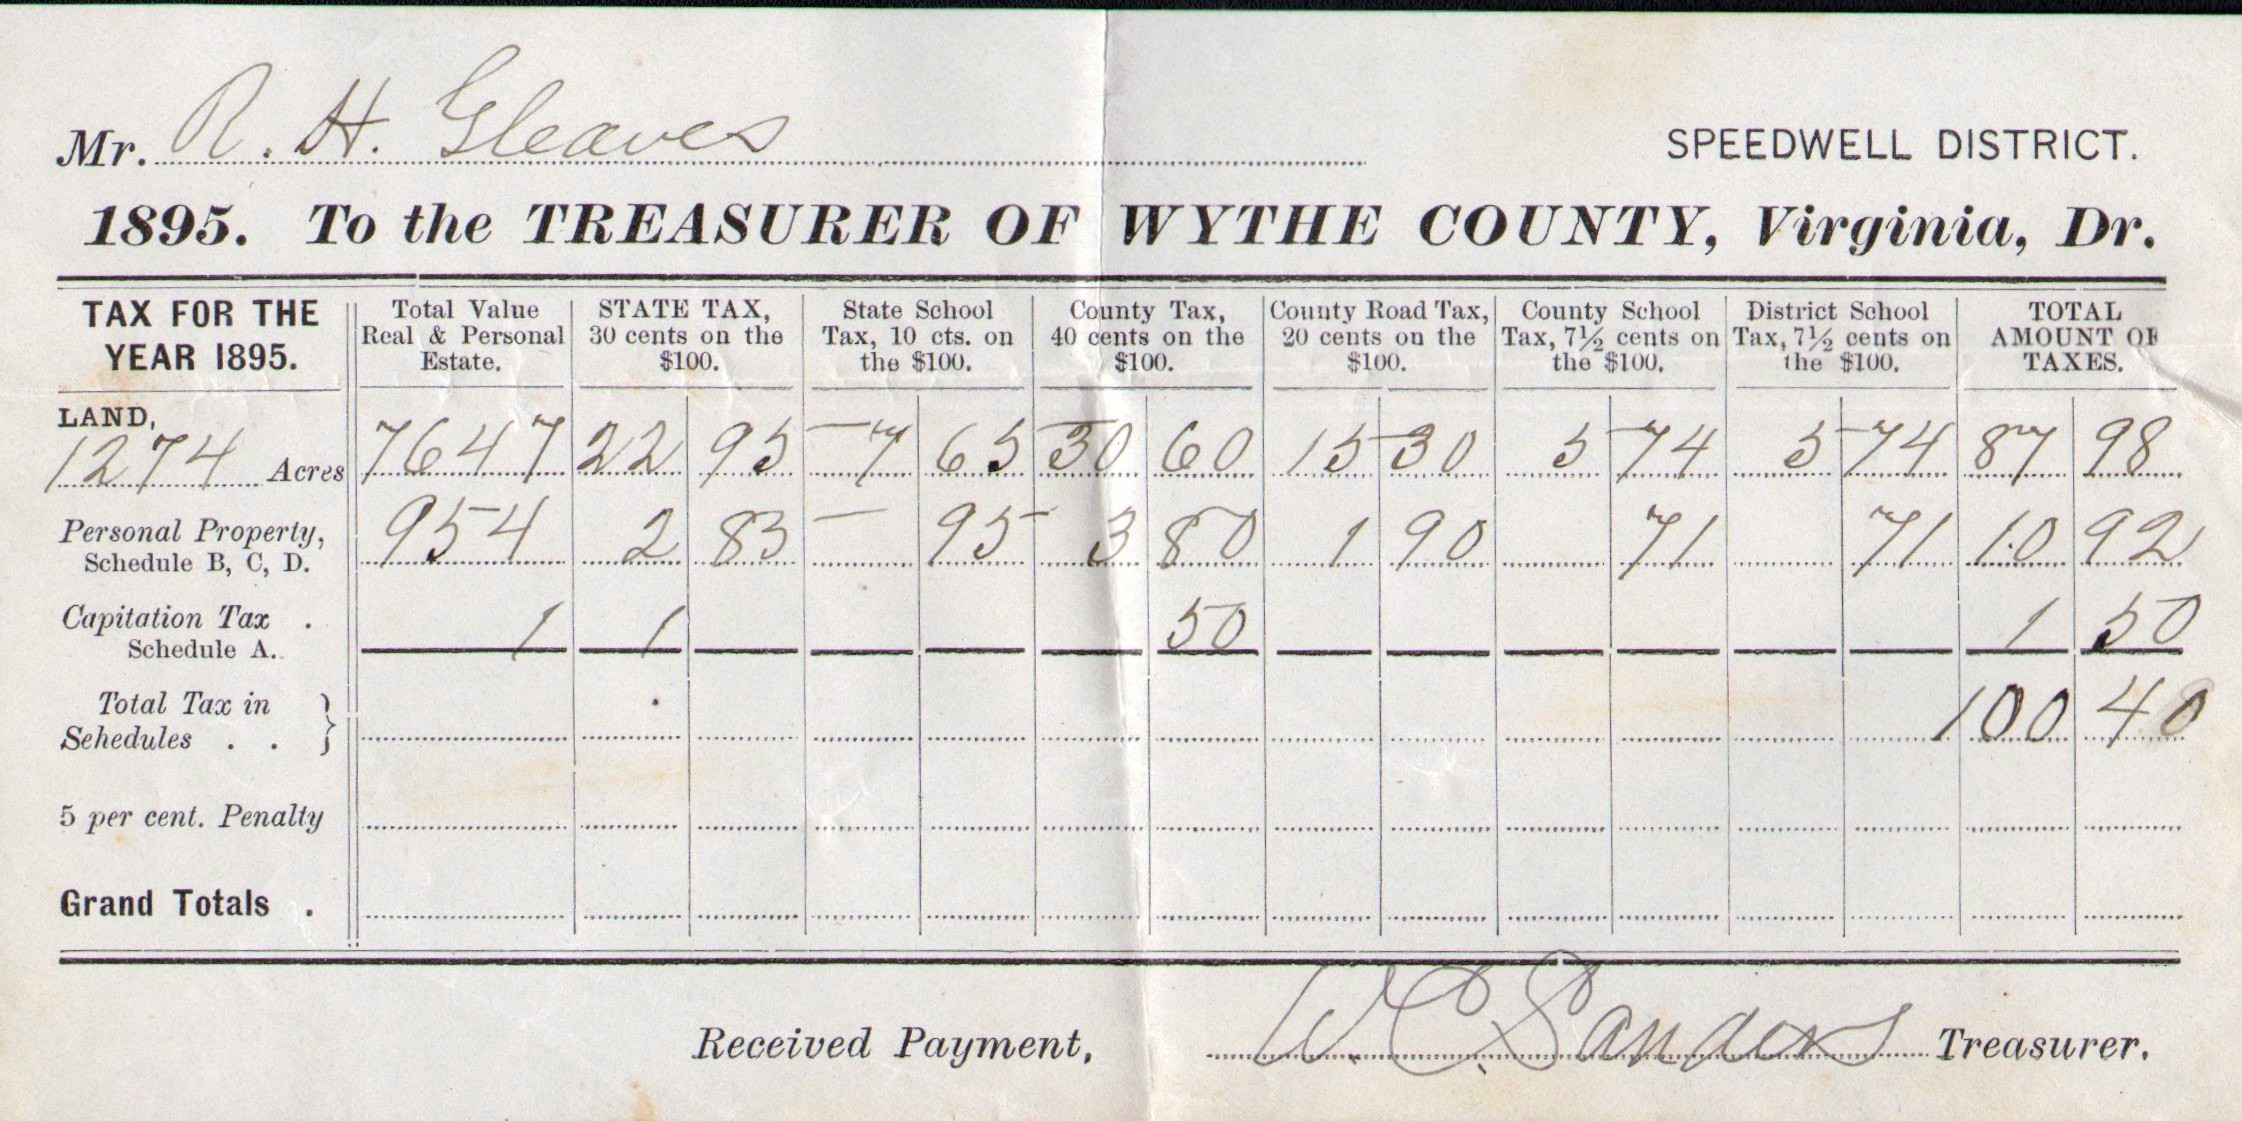 Mr. R. H. Gleaves SPEEDWELL DISTRICT.
1895. To the TREASURER OF WYTHE COUNTY, Virginia, Dr.
TAX FOR THE YEAR 1895. Total Value Real & Personal Estate. STATE TAX, 30 cents on the $100. State School Tax, 10 cts. on the $100. County Tax, 40 cents on the $100. County Road Tax, 20 cents on the $100. County School Tax, 7½ cents on the $100. District School Tax, 7½ cents on the $100. TOTAL AMOUNT OF TAXES.
LAND,
1274 Acres 7647 22 95 7 65 30 60 15 30 5 74 5 74 87 98
Personal Property, 954 2 83 95 3 80 1 90 71 71 10 92
Schedule B, C, D.
Capitation Tax . 1 1 50 1 50
Schedule A.
Total Tax in 100 40
Sehedules . . }
5 per cent. Penalty
Grand Totals .
Received Payment, W. C. Sanders Treasurer.